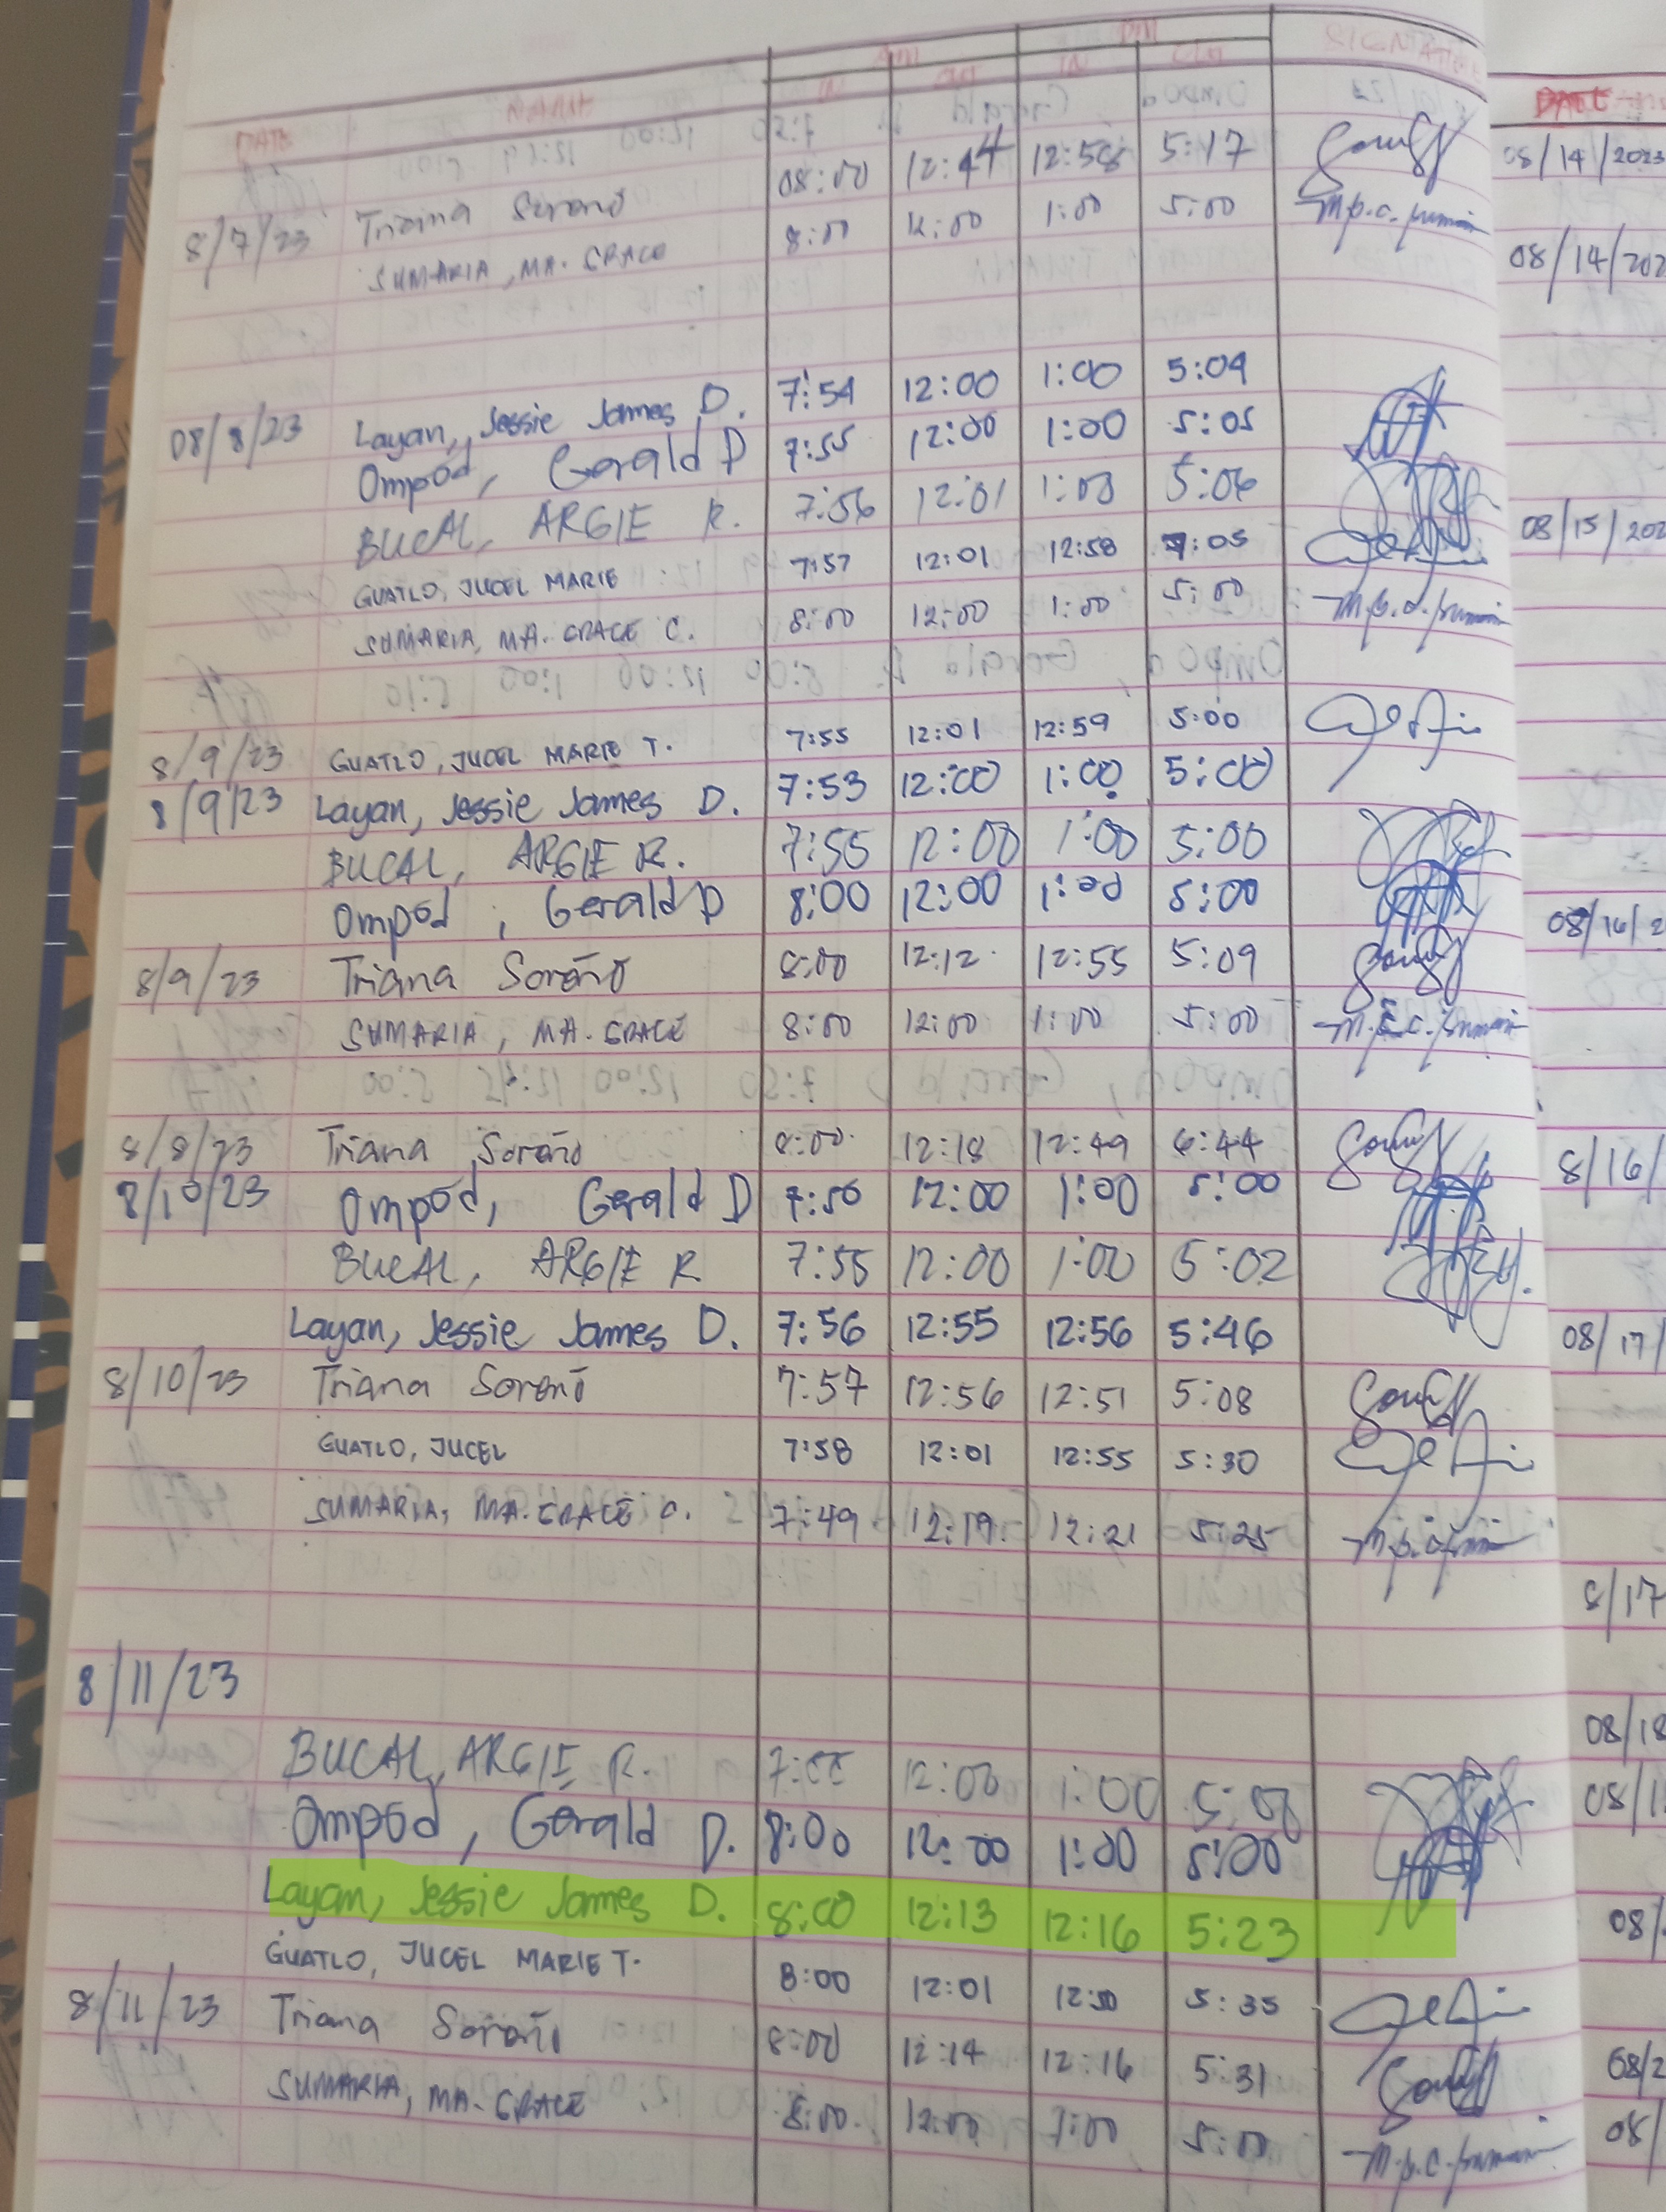 DATE
8/7/23 Triana Soroño 08:00 12:44 12:58 5:17
SUMARIA, MA. GRACE 8:00 12:00 1:00 5:00
08/8/23 Layan, Jessie James D. 7:54 12:00 1:00 5:04
Ompod, Gerald D 7:55 12:00 1:00 5:05
BUCAL, ARGIE R. 7:56 12:01 1:00 5:06
GUATLO, JUCEL MARIE 7:57 12:01 12:58 :05
SUMARIA, MA. GRACE C. 8:00 12:00 1:00 5:00
8/9/23 GUATLO, JUCEL MARIE T. 7:55 12:01 12:59 5:00
8/9/23 Layan, Jessie James D. 7:53 12:00 1:00 5:00
BUCAL, ARGIE R. 7:55 12:00 1:00 5:00
Ompod, Gerald D 8:00 12:00 1:00 5:00
8/9/23 Triana Soroño 8:00 12:12 12:55 5:09
SUMARIA, MA. GRACE 8:00 12:00 1:00 5:00
8/8/23 Triana Soroño 8:00 12:18 12:49 6:44
8/10/23 Ompod, Gerald D 7:50 12:00 1:00 5:00
BUCAL, ARGIE R 7:55 12:00 1:00 5:02
Layan, Jessie James D. 7:56 12:55 12:56 5:46
8/10/23 Triana Soroño 7:57 12:56 12:51 5:08
GUATLO, JUCEL 7:58 12:01 12:55 5:30
SUMARIA, MA. GRACE C. 7:49 12:19 12:21 5:25
8/11/23
BUCAL, ARGIE R. 7:55 12:00 1:00 5:08
Ompod, Gerald D. 8:00 12:00 1:00 5:00
Layan, Jessie James D. 8:00 12:13 12:16 5:23
GUATLO, JUCEL MARIE T. 8:00 12:01 12:50 5:35
8/11/23 Triana Soroño 8:00 12:14 12:16 5:31
SUMARIA, MA. GRACE 8:00 12:00 1:00 5:00
DATE
08/14/2023
08/14/202
08/15/202
08/16/2
8/16/
08/17/
8/17
08/18
08/1
08/
08/2
08/